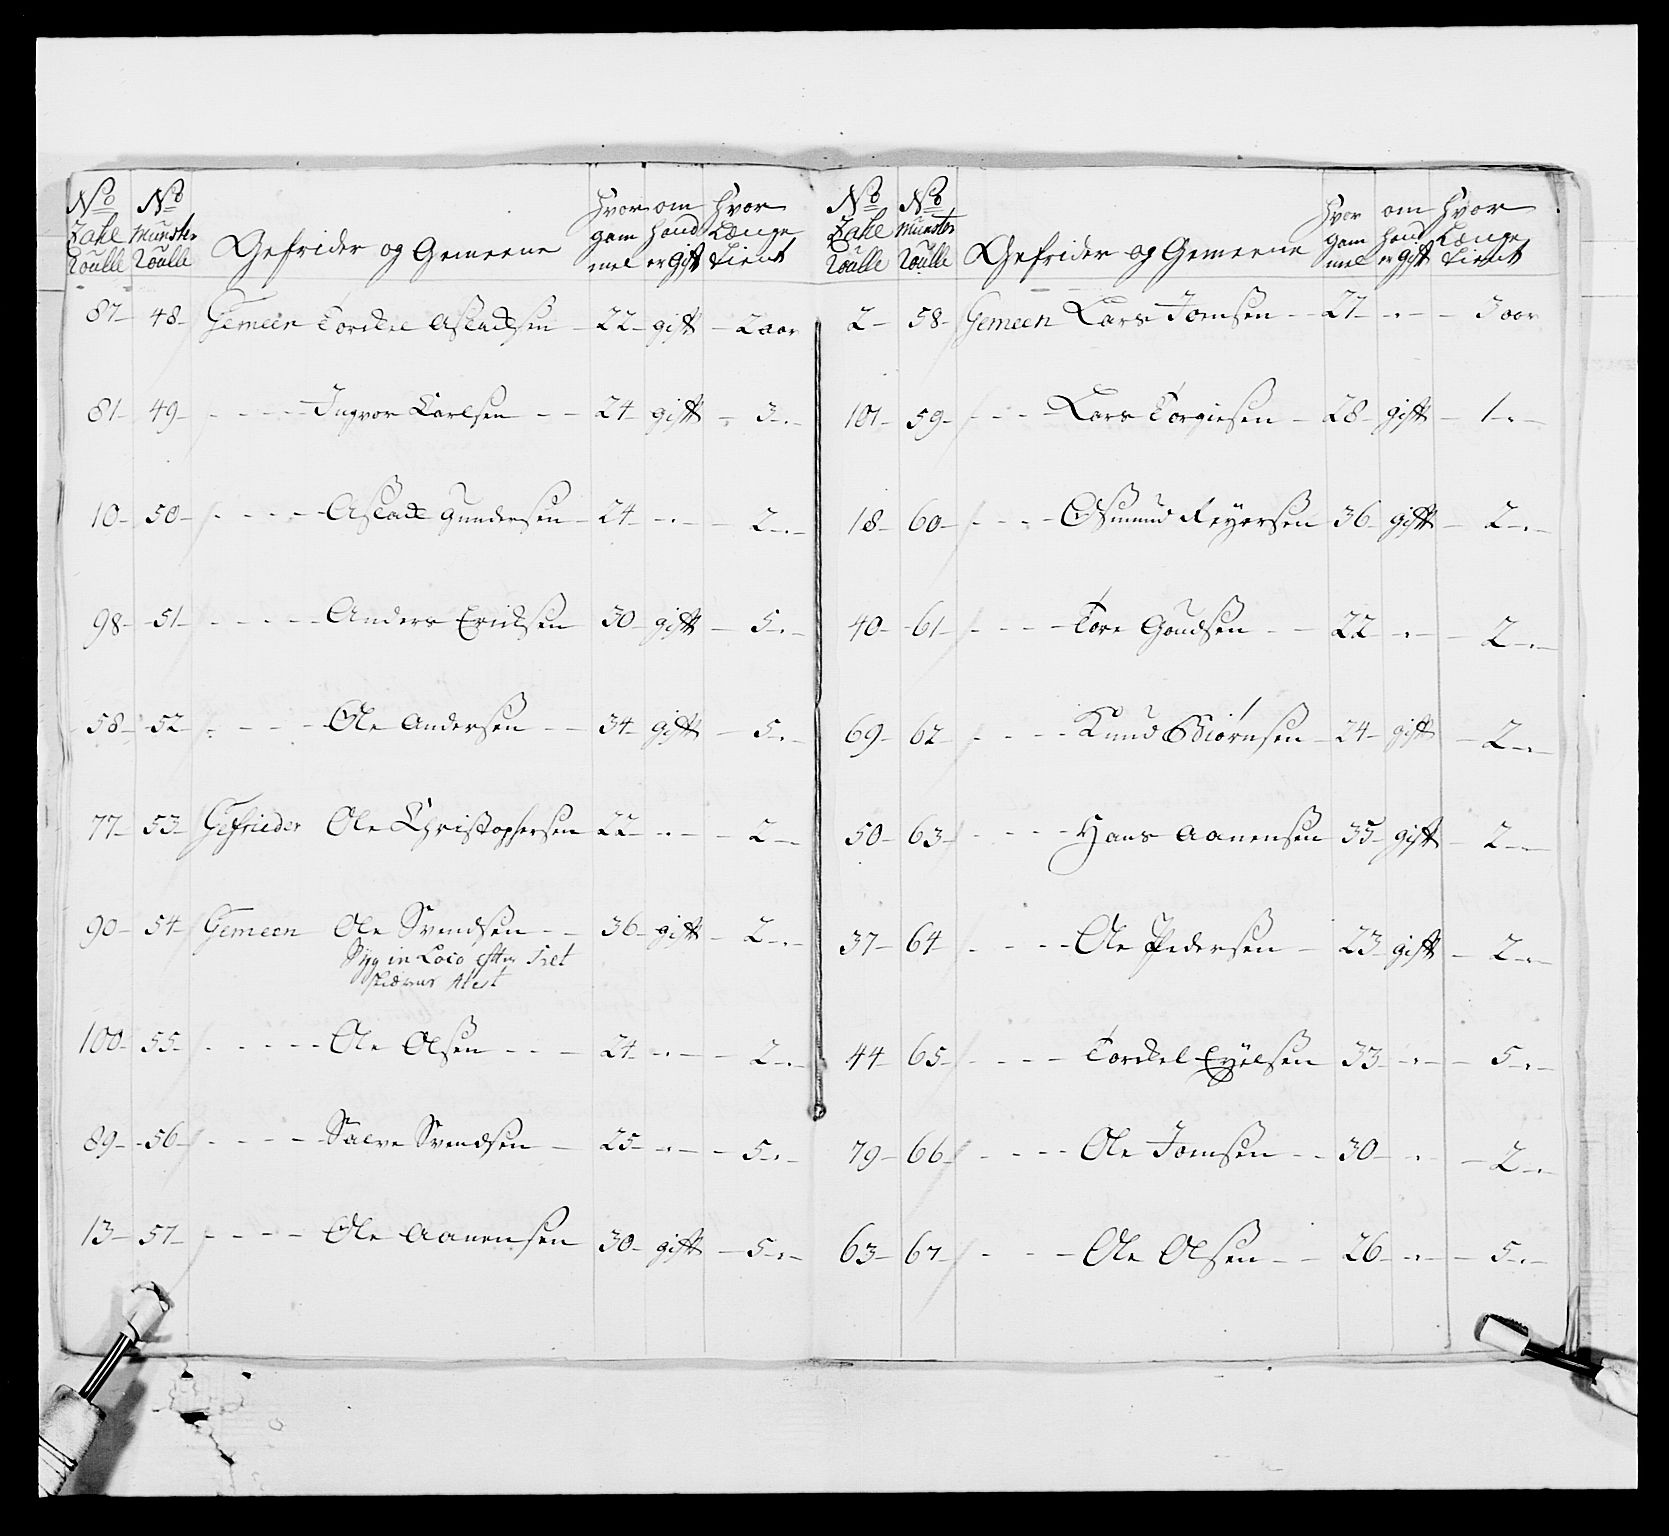 No Zahl Roulle | No Munster Roulle | Gefrider og Gemeene | Hvor gammel | om hand er Gift | Hvor Længe tient
87 – 48 – Gemeen Torckel Aslacksen – 22 – gift – 2 aar
81 – 49 – Ingvor Carlsen – 24 – gift – 3 –
10 – 50 – Aslack Gundersen – 24 – 2 –
98 – 51 – Anders Ericksen 30 – gift – 5 –
58 – 52 – Ole Andersen – 34 – gift – 5 –
77 – 53 – Gefrieder Ole Christophersen 22 – 2 –
90 – 54 Gemeen Ole Svendsen – 36 – gift – 2 –
Syg in Loco efter
Atest
100 – 55 – Ole Olsen – 24 – 2 –
89 – 56 – Salve Svendsen – 25 – 5 –
13 – 57 – Ole Aanensen 30 – gift – 5 –
No Zahl Roulle | No Munster Roulle | Gefrider og Gemeene | Hvor gammel | om hand er Gift | Hvor Længe tient
2 – 58 – Gemeen Lars Jonsen – 27 – 3 aar
101 – 59 – Lars Torgiesen – 28 – gift – 1 –
18 – 60 – Osmund Reyersen 36 – gift – 2 –
40 – 61 – Tore – 22 – 2 –
69 – 62 – Knud Biørnsen – 24 – gift – 2 –
50 – 63 – Hans Aanensen 35 – gift – 2 –
37 – 64 – Ole Pedersen – 23 – gift – 2 –
44 – 65 – Torckel Eyelsen 33 – 5 –
79 – 66 – Ole Jonsen – 30 – 2 –
63 – 67 – Ole Olsen – 26 – 5 –